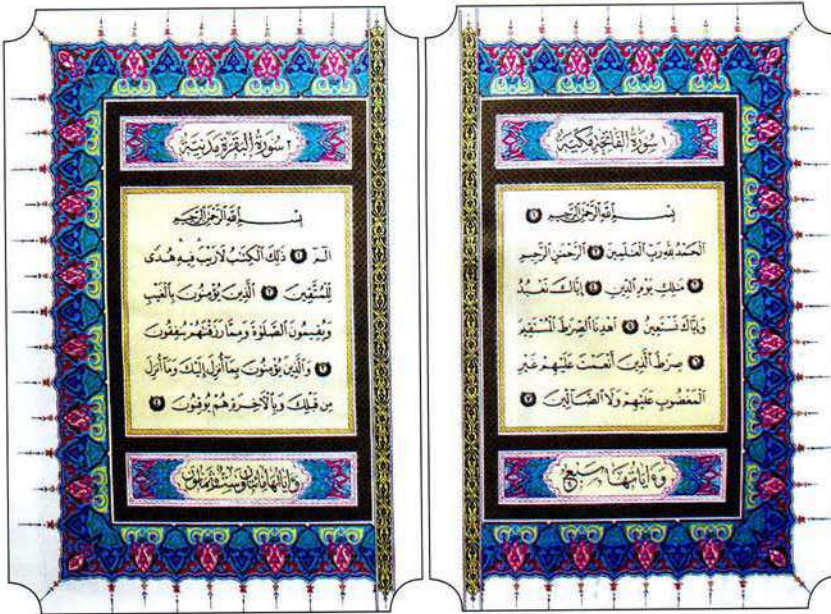 ١ سُورَةُ الفَاتِحَةِ مَكِّيَّة
بِسْمِ اللَّهِ الرَّحْمَٰنِ الرَّحِيمِ ١
الْحَمْدُ لِلَّهِ رَبِّ الْعَٰلَمِينَ ٢ الرَّحْمَٰنِ الرَّحِيمِ
٣ مَٰلِكِ يَوْمِ الدِّينِ ٤ إِيَّاكَ نَعْبُدُ
وَإِيَّاكَ نَسْتَعِينُ ٥ اهْدِنَا الصِّرَٰطَ الْمُسْتَقِيمَ
٦ صِرَٰطَ الَّذِينَ أَنْعَمْتَ عَلَيْهِمْ غَيْرِ
الْمَغْضُوبِ عَلَيْهِمْ وَلَا الضَّالِّينَ ٧
وَءَايَاتُهَا سَبْع
٢ سُورَةُ البَقَرَةِ مَدَنِيَّة
بِسْمِ اللَّهِ الرَّحْمَٰنِ الرَّحِيمِ
الٓمٓ ١ ذَٰلِكَ الْكِتَٰبُ لَا رَيْبَ فِيهِ هُدًى
لِّلْمُتَّقِينَ ٢ الَّذِينَ يُؤْمِنُونَ بِالْغَيْبِ
وَيُقِيمُونَ الصَّلَوٰةَ وَمِمَّا رَزَقْنَٰهُمْ يُنفِقُونَ
٣ وَالَّذِينَ يُؤْمِنُونَ بِمَا أُنزِلَ إِلَيْكَ وَمَا أُنزِلَ
مِن قَبْلِكَ وَبِالْآخِرَةِ هُمْ يُوقِنُونَ ٤
وَءَايَاتُهَا مِائَتَانِ وَسِتٌّ وَثَمَانُون